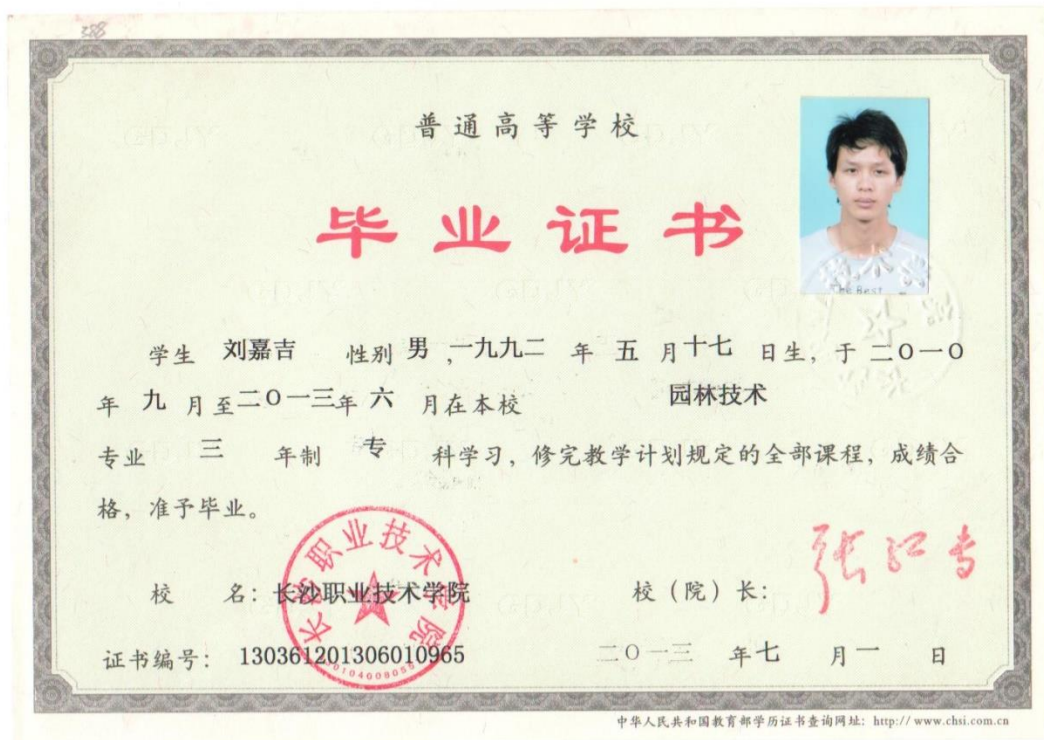 388
普通高等学校
毕业证书
The Best
学生 刘嘉吉 性别 男 ,一九九二 年 五 月十七 日生，于 二〇一〇
年 九 月至二〇一三年 六 月在本校 园林技术
专业 三 年制 专 科学习，修完教学计划规定的全部课程，成绩合
格，准予毕业。
长沙职业技术学院
校 名：长沙职业技术学院 校（院）长：
证书编号： 130361201306010965 二〇一三 年七 月一 日
中华人民共和国教育部学历证书查询网址：http:// www.chsi.com.cn